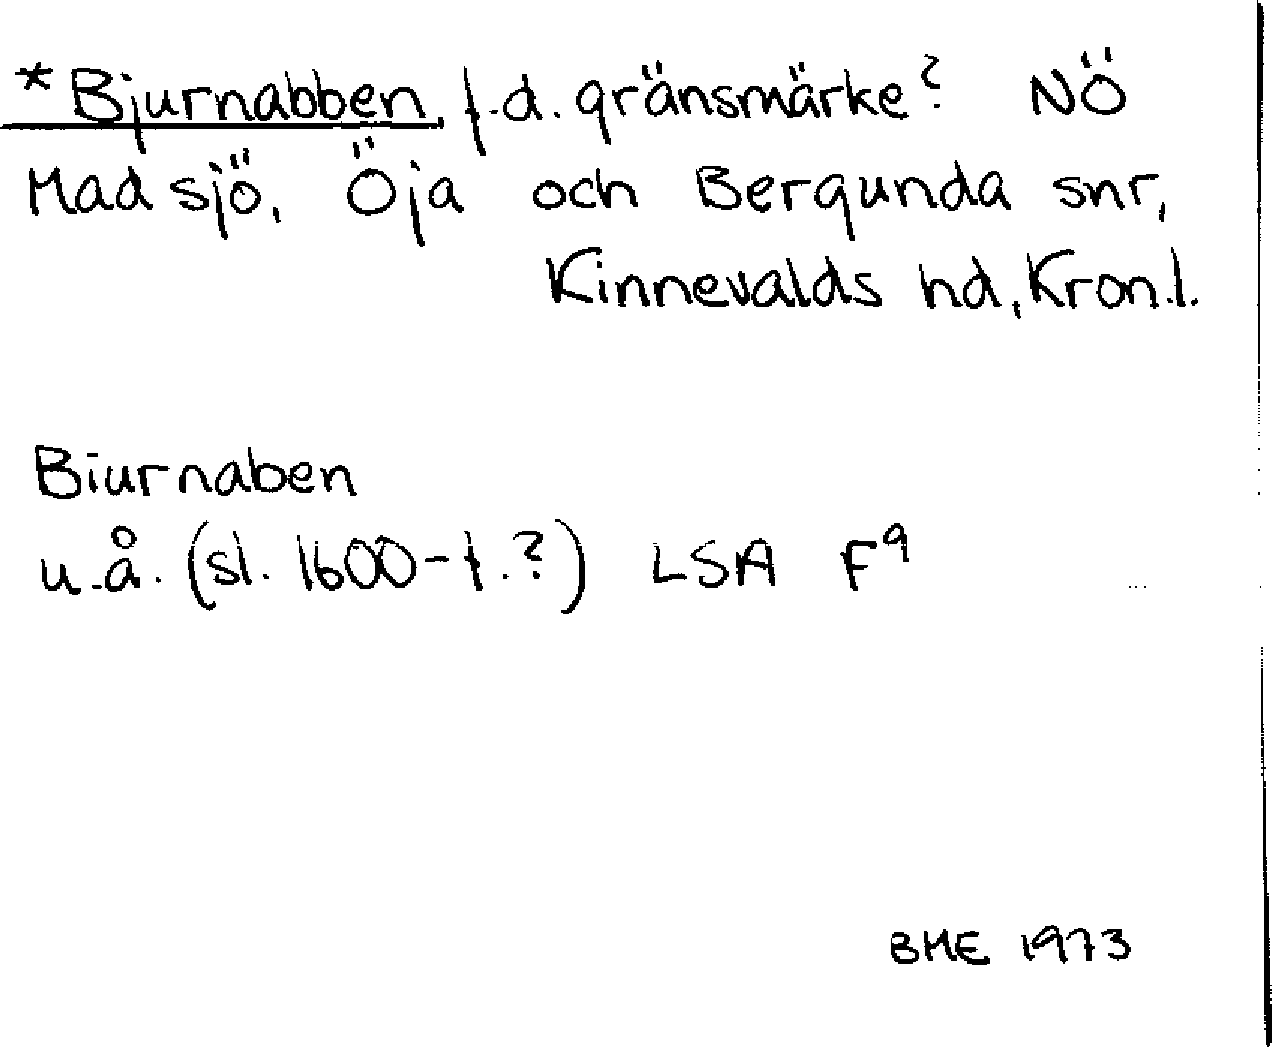 *Bjurnabben, f.d. gränsmärke? NÖ
Madsjö, Öja och Bergunda snr,
Kinnevalds hd, Kron.l.
Biurnaben
u.å. (sl. 1600-t.?) LSA F9
BME 1973